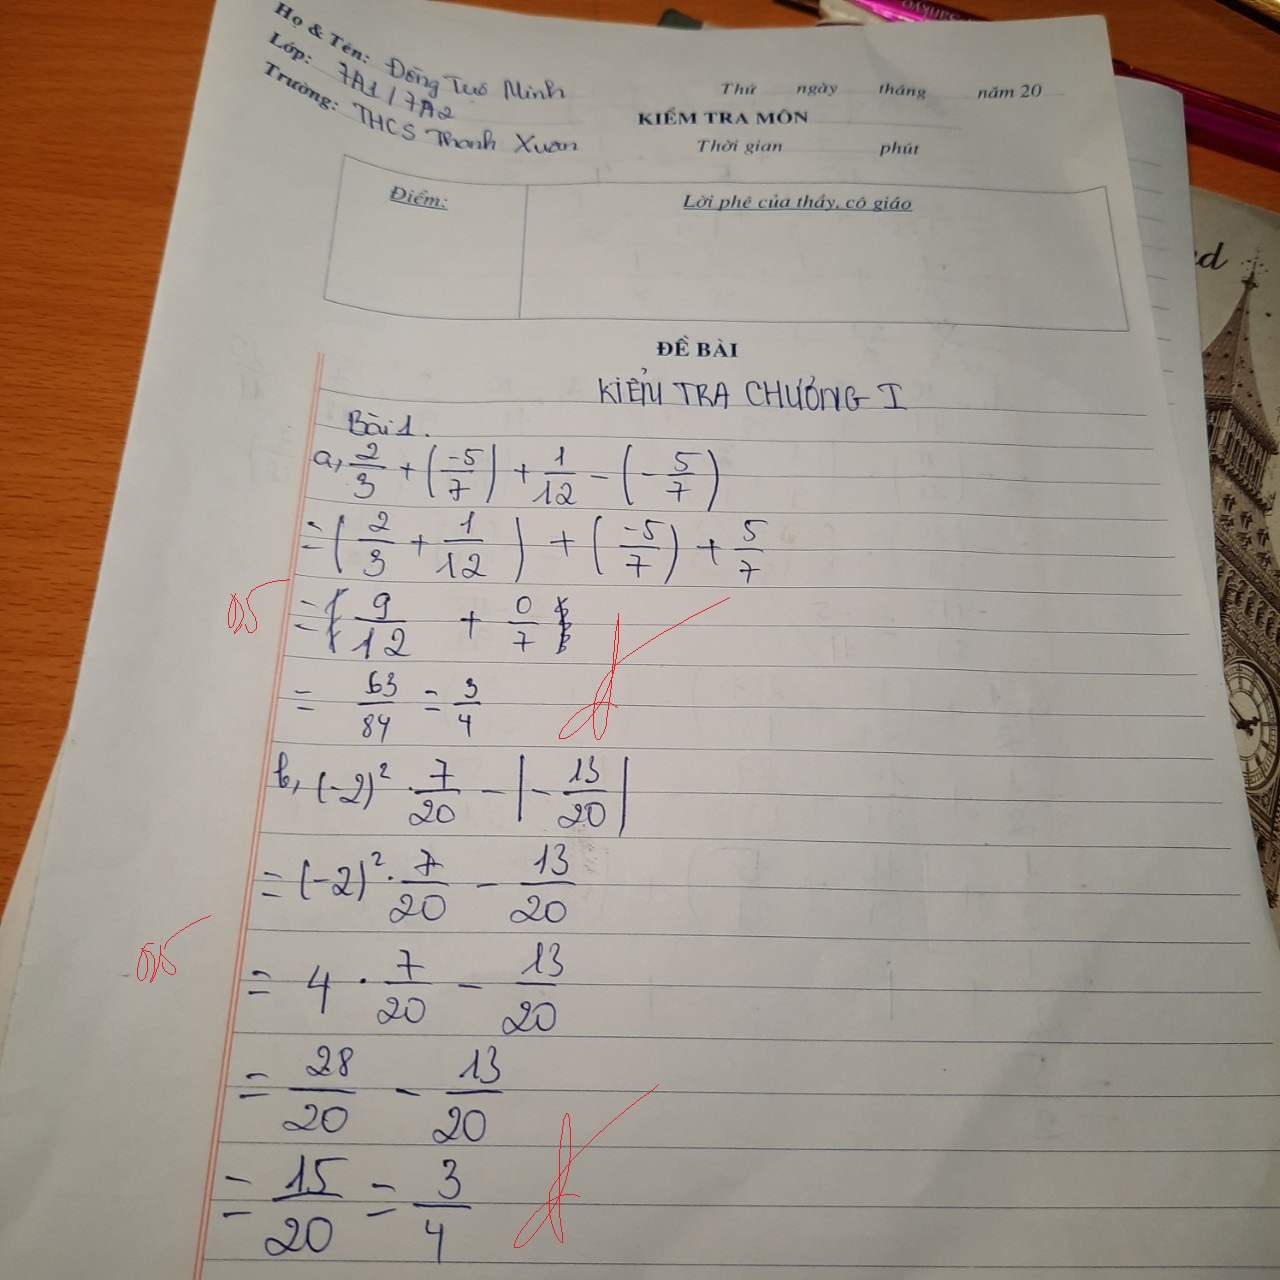 Họ & Tên: Đồng Tuệ Minh
Lớp: 7A1 / 7A2
Trường: THCS Thanh Xuân
Thứ ngày tháng năm 20
KIỂM TRA MÔN
Thời gian phút
Điểm:
Lời phê của thầy, cô giáo
ĐỀ BÀI
KIỂM TRA CHƯƠNG I
Bài 1.
a, 2/3 + (-5/7) + 1/12 - (-5/7)
= (2/3 + 1/12) + (-5/7) + 5/7
0,5
= 9/12 + 0/7
= 63/84 = 3/4
b, (-2)² · 7/20 - |-13/20|
= (-2)² · 7/20 - 13/20
0,5
= 4 · 7/20 - 13/20
= 28/20 - 13/20
= 15/20 = 3/4